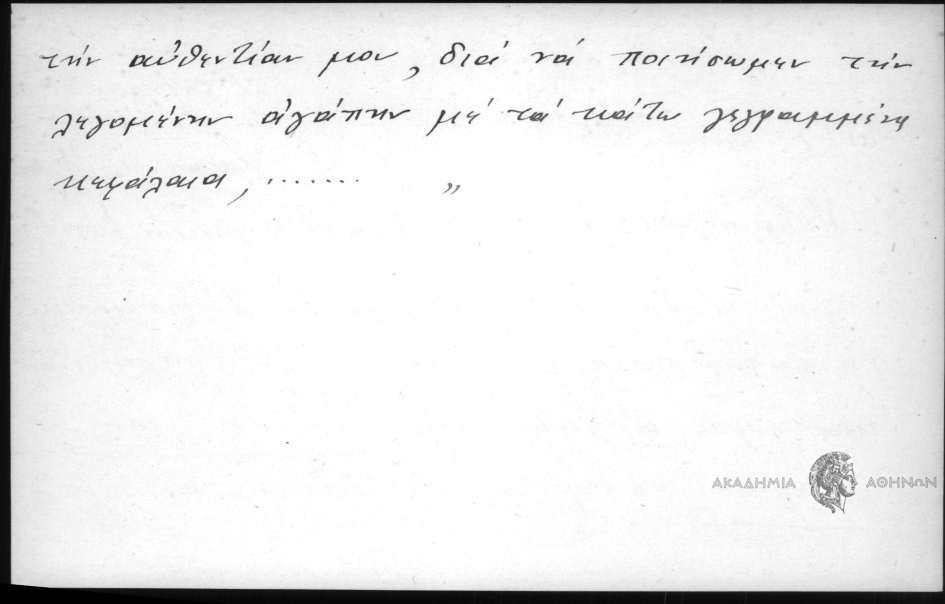 τήν αὐθεντίαν μου, διά νά ποιήσωμεν τήν
λεγομένην ἀγάπην μέ τά κάτω γεγραμμένα
κεφάλαια, ........ „
ΑΚΑΔΗΜΙΑ ΑΘΗΝΩΝ